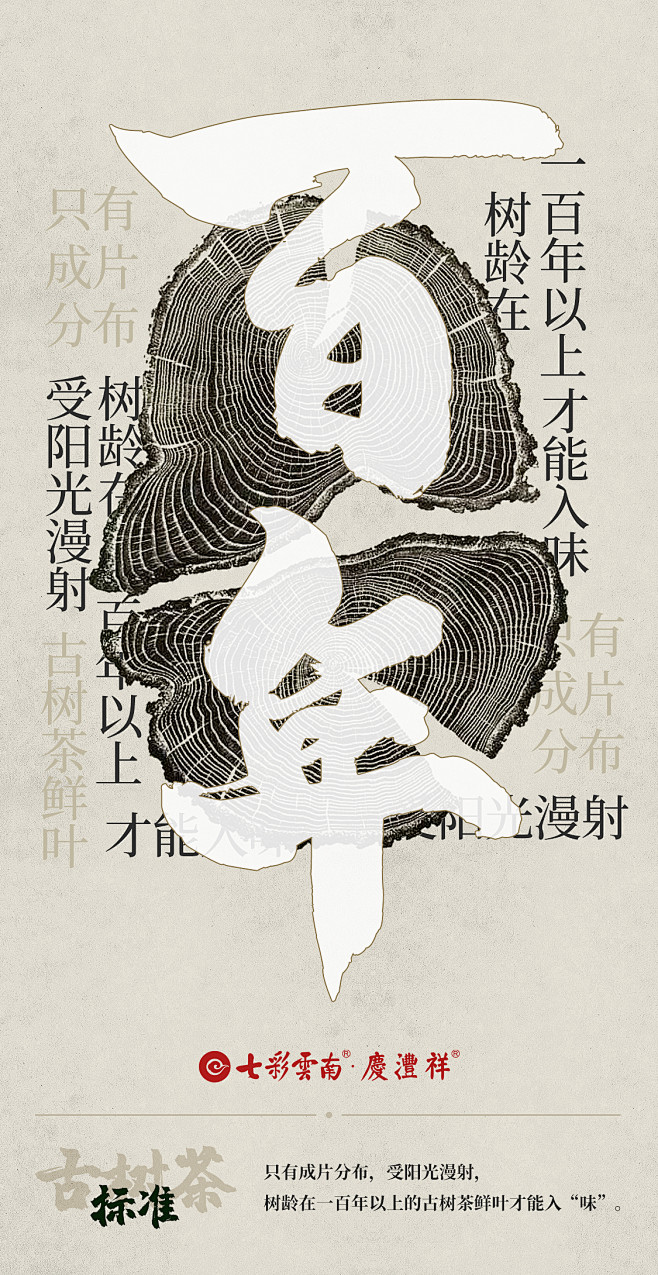 百年
一百年以上才能入味
树龄在
只有
成片
分布
树龄在一百年以上
受阳光漫射
古树茶鲜叶
才能入味
只有
成片
分布
受阳光漫射
七彩雲南®·慶灃祥®
古树茶
标准
只有成片分布，受阳光漫射，
树龄在一百年以上的古树茶鲜叶才能入“味”。